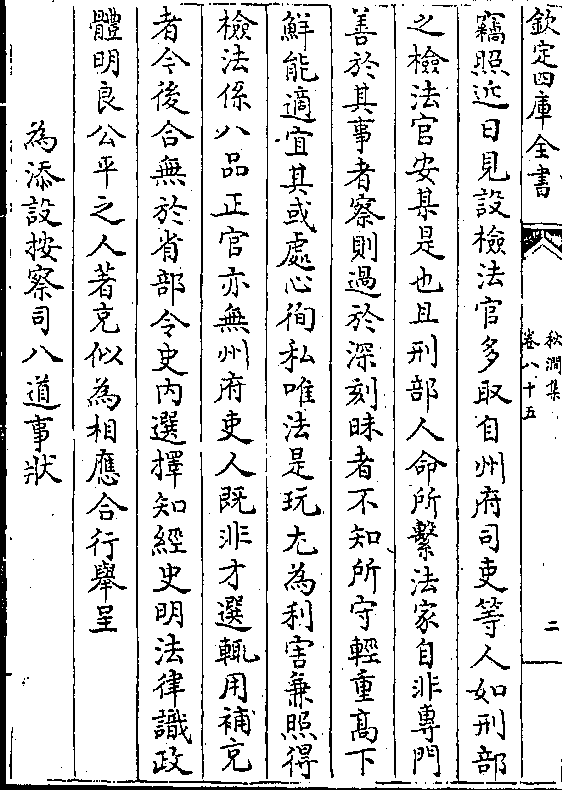 欽定四庫全書
秋澗集
卷八十五
二
竊照近日見設檢法官多取自州府司吏等人如刑部
之檢法官安某是也且刑部人命所繫法家自非專門
善於其事者察則過於深刻昧者不知所守輕重髙下
鮮能適宜其或處心徇私唯法是玩尤為利害兼照得
檢法係八品正官亦無州府吏人既非才選輒用補充
者今後合無於省部令史内選擇知經史明法律識政
體明良公平之人著充似為相應合行舉呈
為添設按察司八道事狀